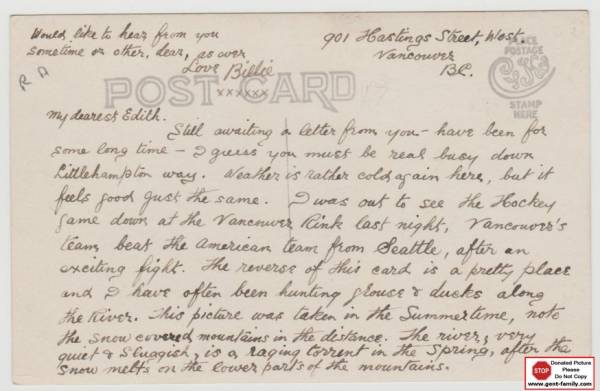 Would like to hear from you
sometime or other, dear, as ever
Love Billie
xxxxxx
901 Hastings Street, West.
Vancouver
B.C.
R A
POST CARD
PLACE
POSTAGE
STAMP
HERE
My dearest Edith.
Still awaiting a letter from you - have been for
some long time - I guess you must be real busy down
Littlehampton way. Weather is rather cold again here, but it
feels good just the same. I was out to see the Hockey
game down at the Vancouver Rink last night, Vancouver's
team beat the American team from Seattle, after an
exciting fight. The reverse of this card is a pretty place
and I have often been hunting grouse & ducks along
the River. This picture was taken in the Summertime, note
the snow covered mountains in the distance. The river, very
quiet & sluggish, is a raging torrent in the Spring, after the
snow melts on the lower parts of the mountains.
STOP
Donated Picture
Please
Do Not Copy
www.gent-family.com